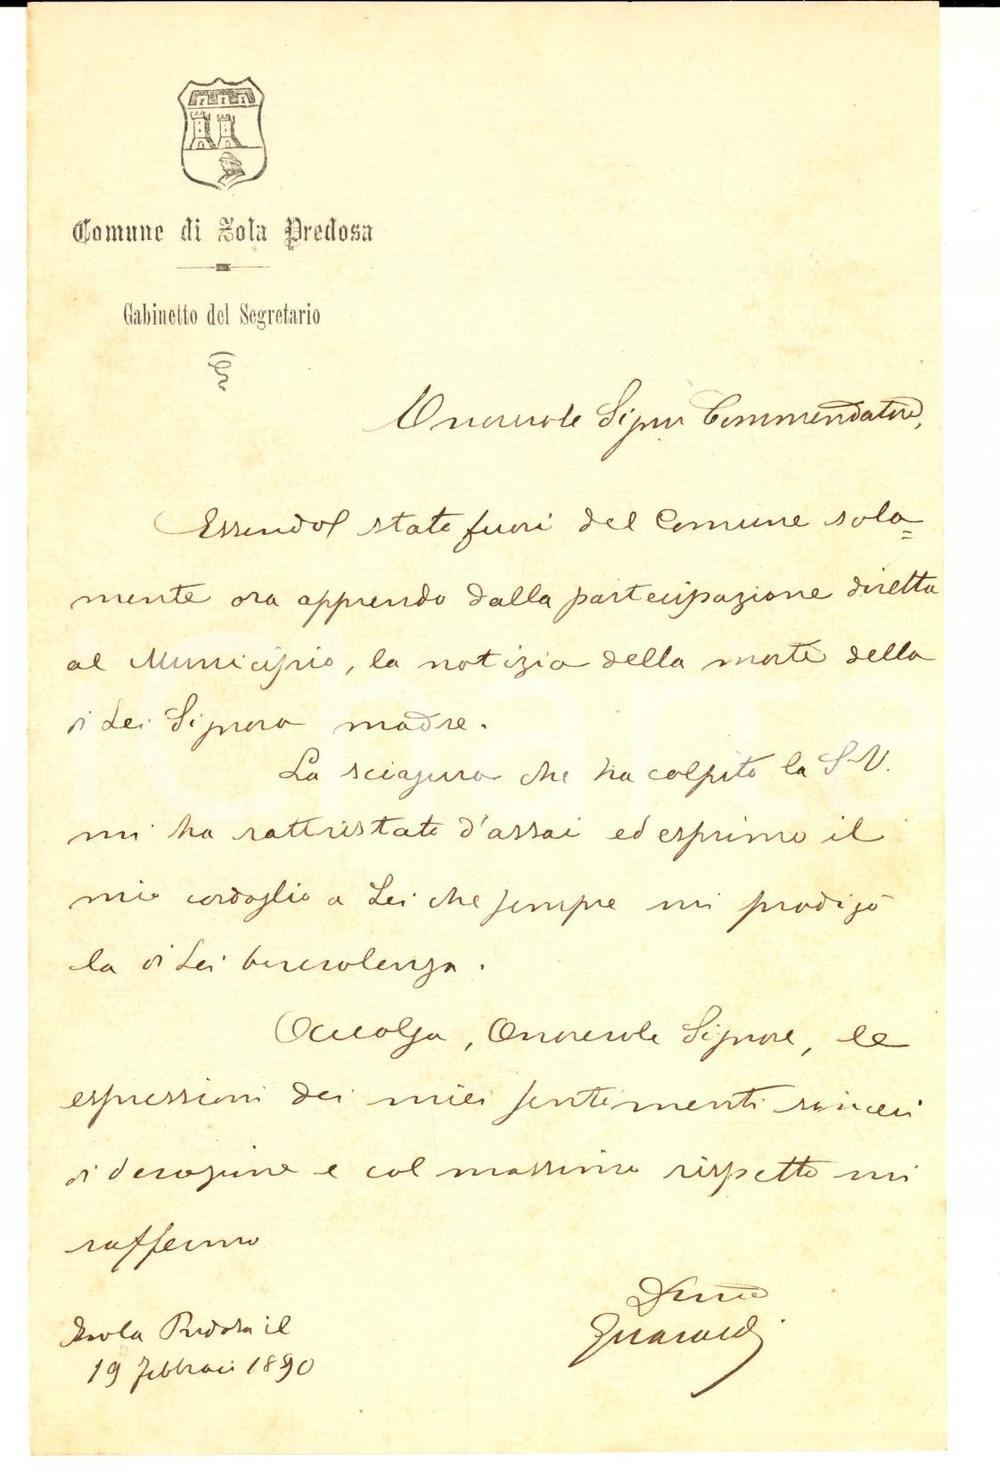 Comune di Zola Predosa
Gabinetto del Segretario
Onorevole Signor Commendatore,
Essendo stato fuori del Comune sola=
mente ora apprendo dalla partecipazione diretta
al Municipio, la notizia della morte della
di Lei Signora madre.
La sciagura che ha colpito la S.V.
mi ha rattristato d'assai ed esprimo il
mio cordoglio a Lei che sempre mi prodigò
la di Lei benevolenza.
Accolga, Onorevole Signore, le
espressioni dei miei sentimenti sinceri
di devozione e col massimo rispetto mi
raffermo
Zola Predosa il
19 febbraio 1890